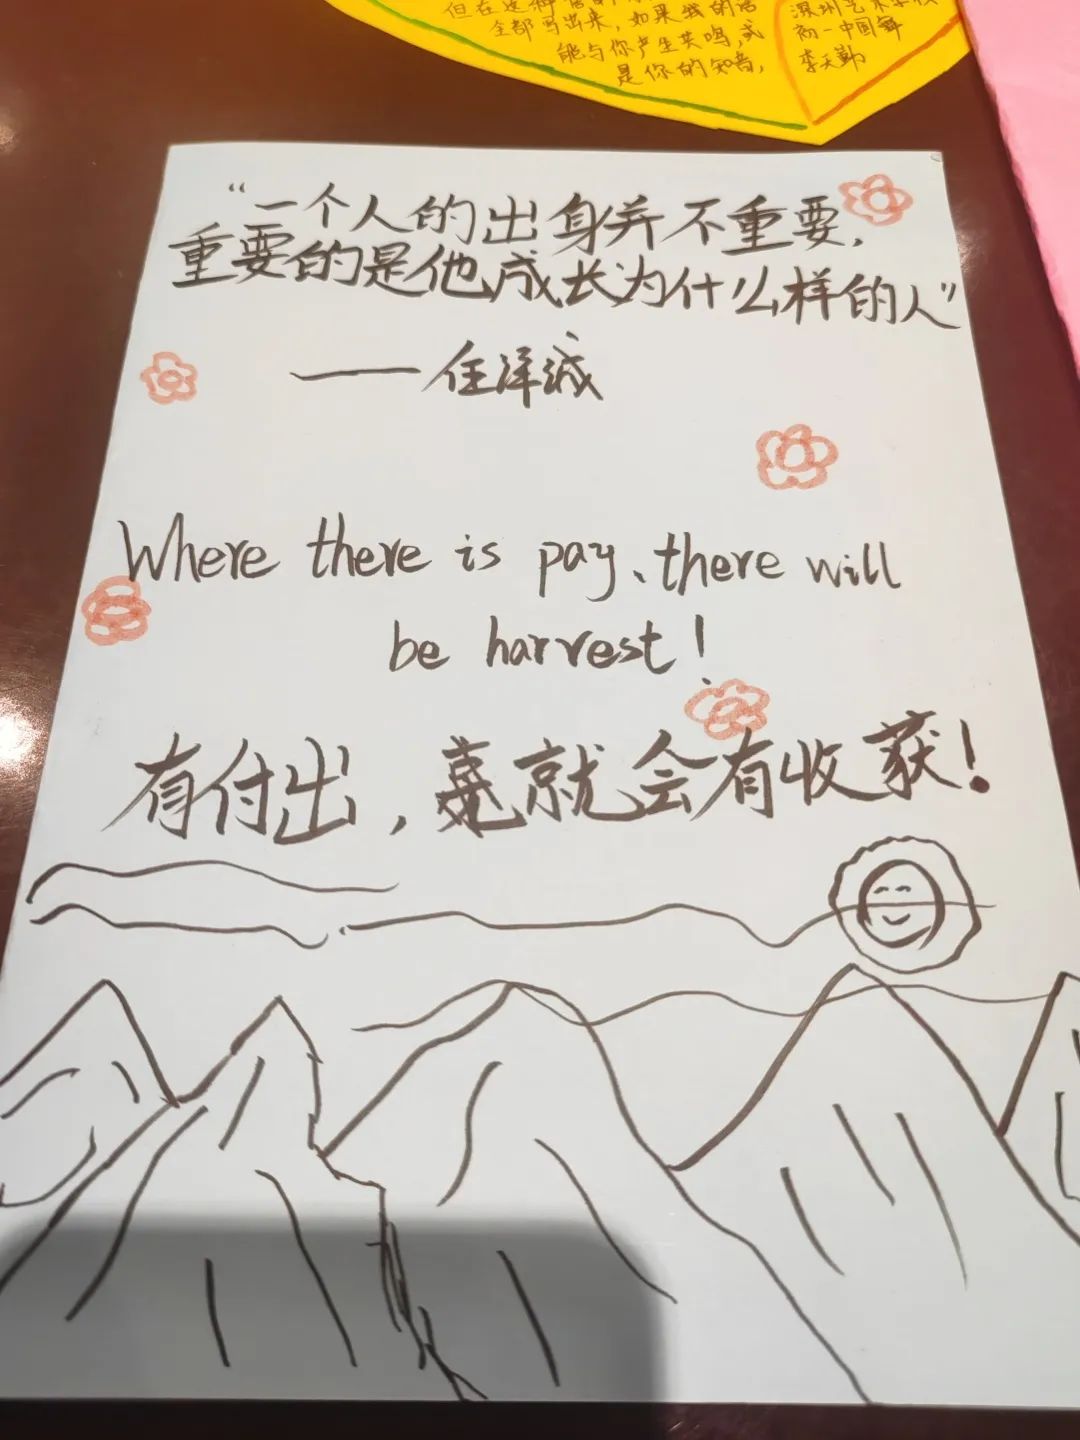 全部写出来，如果我的话
能与你产生共鸣，或
是你的知音，
初一中国舞
李天勤
“一个人的出身并不重要，
重要的是他成长为什么样的人”
——任泽诚
Where there is pay、there will
be harrvest!
有付出，就会有收获！